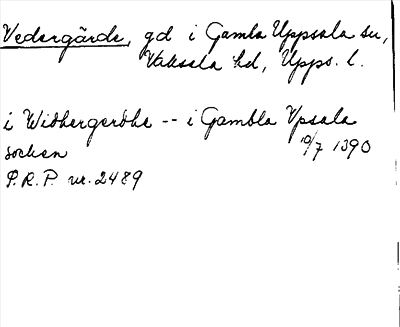 Vedergärde, gd i Gamla Uppsala sn,
Vaksala hd, Upps. l.
i Widhergerdhe -- i Gambla Vpsala
socken 10/7 1390
P.R.P. nr. 2489